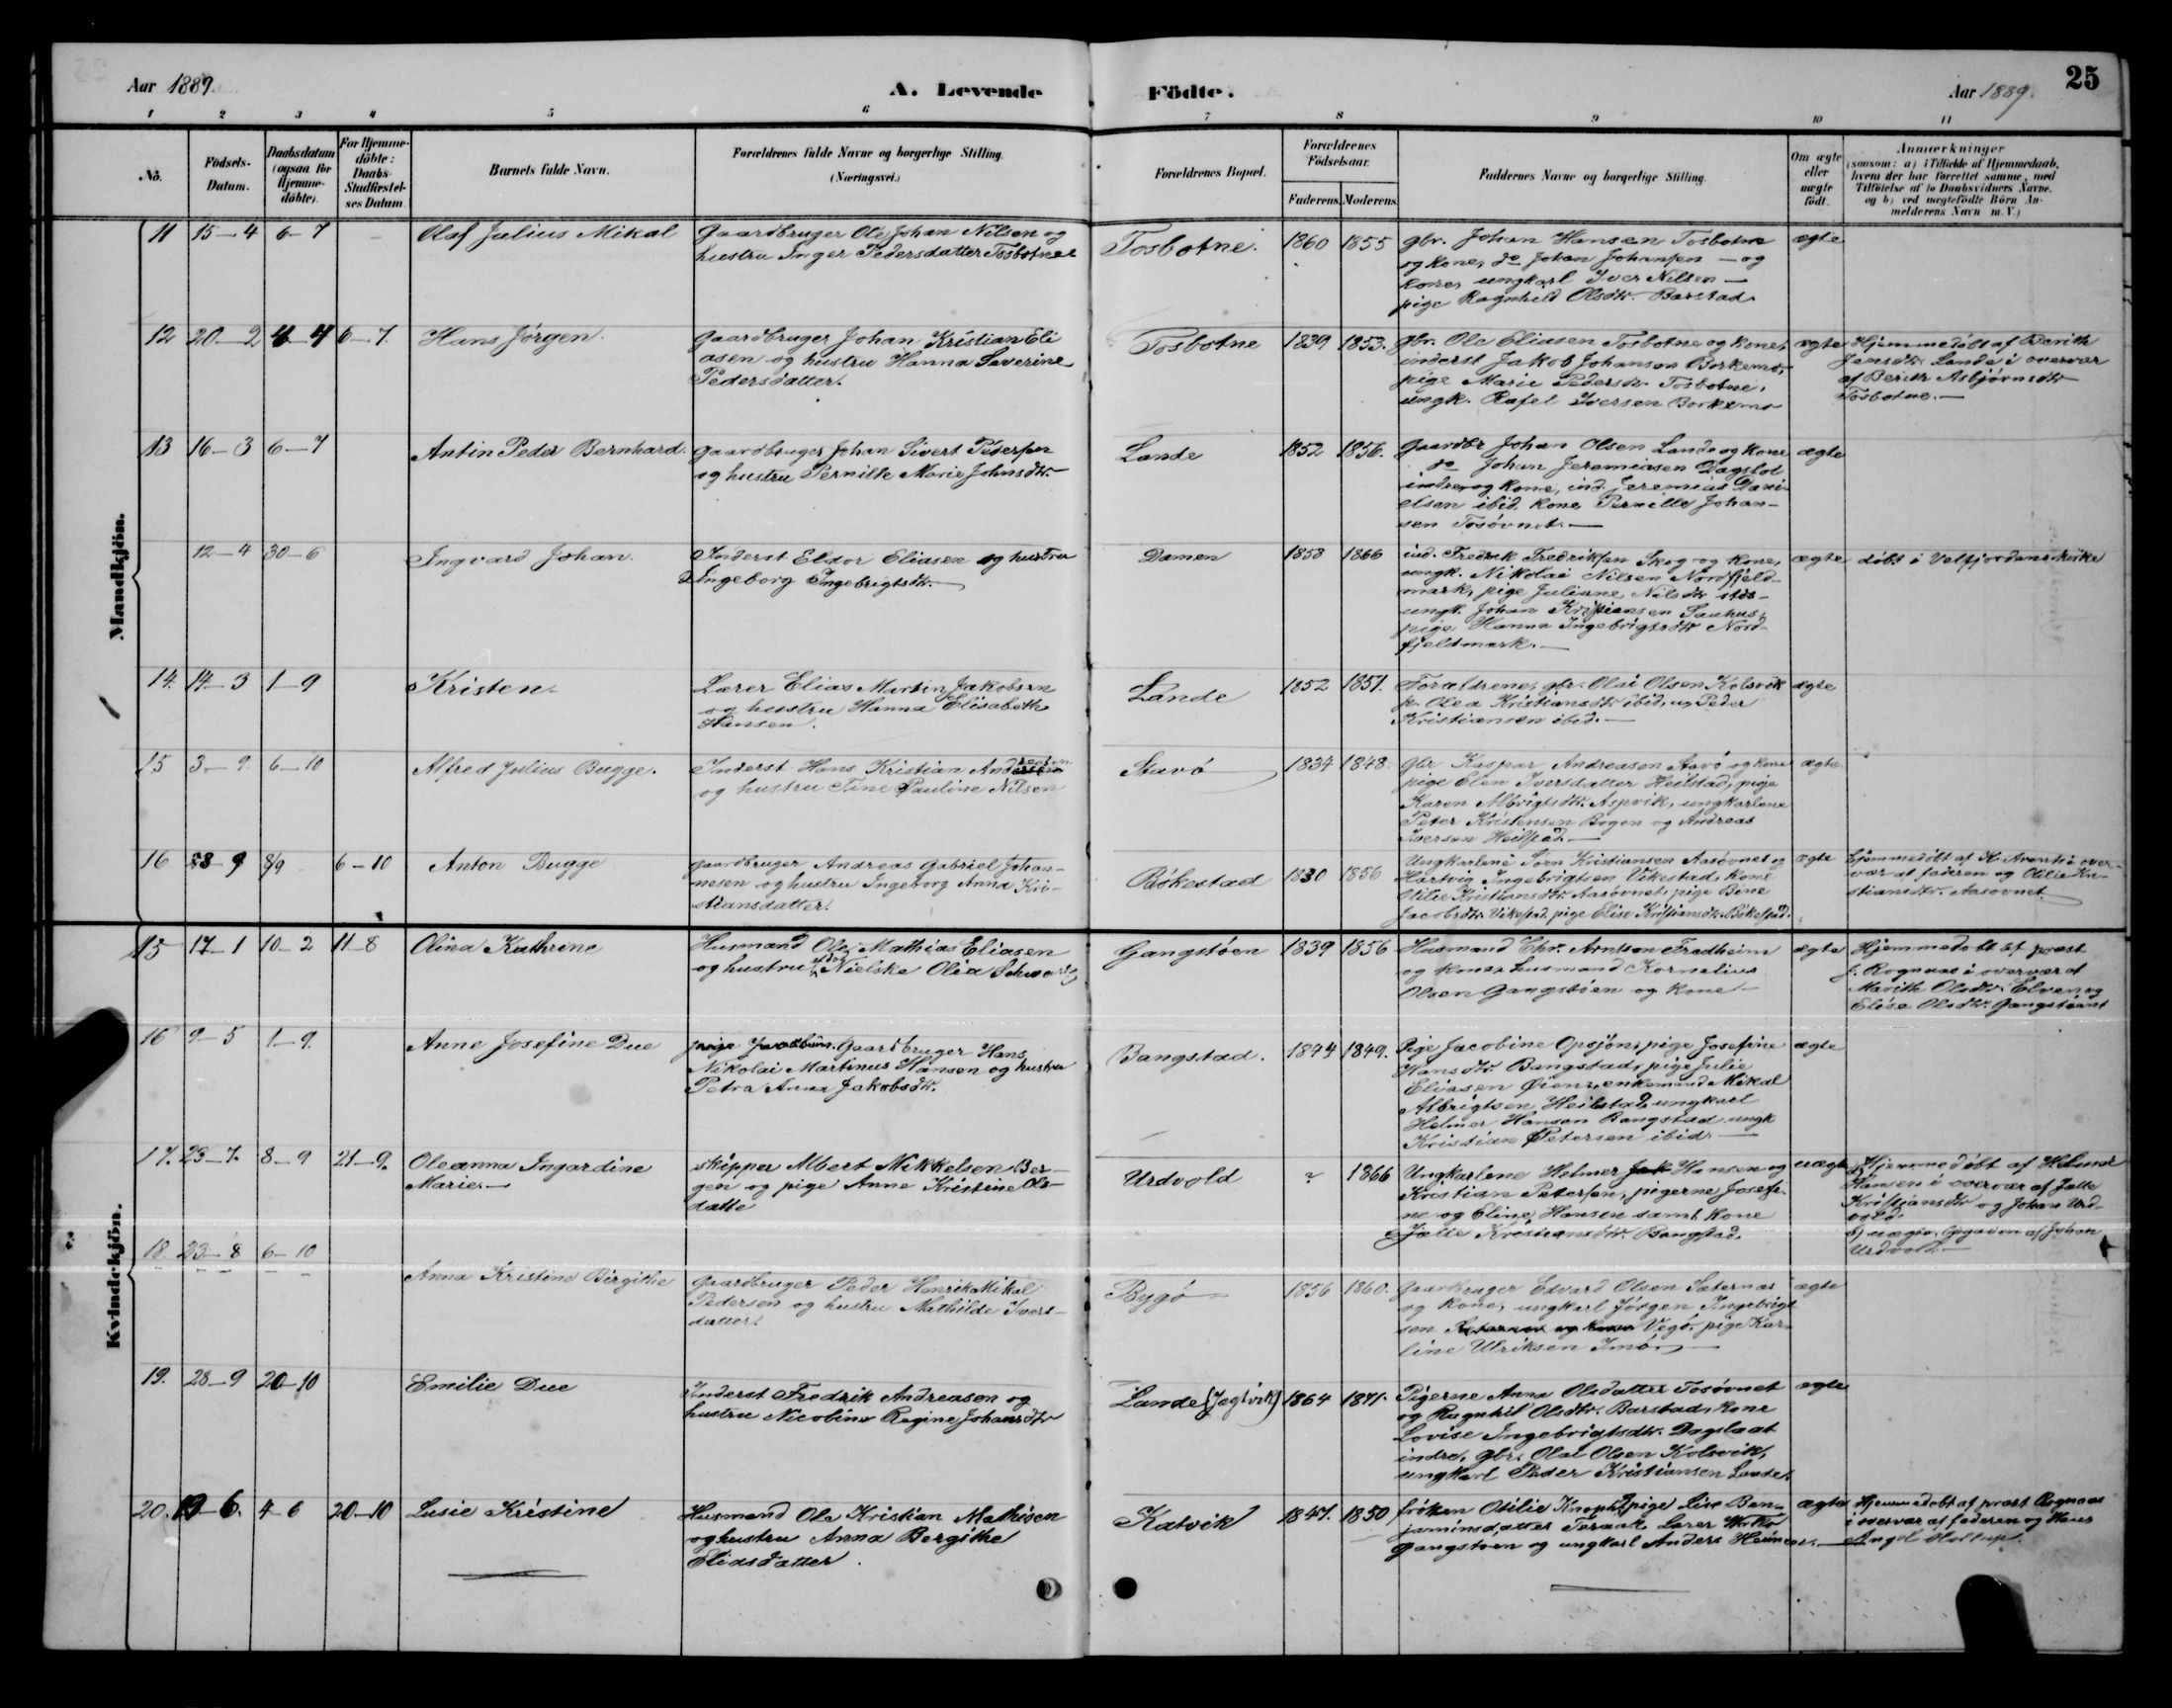 Aar 1889.
A. Levende
Födte.
Aar 1889.
25
1 2 3 4 5 6 7 8 9 10 11
No.
Födsels-Datum.
Daabsdatum (ogsaa for Hjemme-döbte).
For Hjemme-döbte: Daabs-Stadfæstel-ses Datum
Barnets fulde Navn.
Forældrenes fulde Navne og borgerlige Stilling.
(Næringsvei.)
Forældrenes Bopæl.
Forældrenes Födselsaar.
Faderens Moderens
Faddernes Navne og borgerlige Stilling.
Om ægte eller uægte födt.
Anmærkninger
(saasom: a) i Tilfælde af Hjemmedaab,
hvem der har forrettet samme, med
Tilföielse af to Daabsvidners Navne.
og b) ved uægtefödte Börn An-
melderens Navn m. V.)
Mandkjön.
11 15-4 6-7 - Olaf Julius Mikal
Gaardbruger Ole Johan Nilsen og
hustru Inger Pedersdatter Tosbotne
Tosbotne. 1860 1855
gbr. Johan Hansen Tosbotne
og kone, do Johan Johansen - og
kone, ungkarl Iver Nilsen -
pige Ragnhild Olsdtr. Barstad.
ægte
12 20-2 4-4 6-7. Hans Jörgen.
Gaardbruger Johan Kristian Eli
asen og hustru Hanna Severine
Pedersdatter.
Tosbotne 1839 1853.
gbr. Ole Eliasen Tosbotne og kone,
inderst Jakob Johansen Borkemo,
pige Marie Pedersdr. Tosbotne,
ungk. Rafel Iversen Borkemo
ægte
Hjemmedöbt af Berith
Jensdtr. Lande i overvær
af Berith Asbjörnsdtr
Tosbotne.-
13 16-3 6-7 Antin Peder Bernhard.
Gaardbruger Johan Sivert Pedersen
og hustru Pernille Marie Johnsdtr.
Lande 1852 1856.
Gaardbr Johan Olsen Lande og kone
do Johan Jeremiasen Dagslot
indre, og kone, ind. Jeremias Dani-
elsen ibid. kone Pernille Johan-
sen Tosövnet.-
ægte
12-4 30-6 Ingvard Johan.
Inderst Eldor Eliasen og hustru
Ingeborg Ingebrigtsdtr.-
Damen 1858 1866
ind. Fredrik Fredriksen Skog og kone,
ungk. Nikolai Nilsen Nordfjeld-
mark, pige Juliane Nilsdtr
ungk. Johan Kristiansen Sauhus,
pige Hanna Ingebrigtsdtr Nord-
fjeldmark.-
ægte
döbt i Velfjordens kirke
14. 14-3 1-9 Kristen.
Lærer Elias Martin Jakobsen
og hustru Hanna Elisabeth
Hansen.
Lande 1852 1851.
Forældrene, gbr. Olai Olsen Kolsvik
p. Olea Kristiansdtr ibid, ug Peder
Kristiansen ibid.-
ægte
15 3-9. 6-10 Alfred Julius Bugge.
Inderst Hans Kristian Andreasen
og hustru Tine Pauline Nilsen
Stavö 1834 1848.
gbr Kaspar Andreasen Stavö og kone
pige Elen Iversdatter Heilstad, pige
Karen Albrigtsdtr. Aspvik, ungkarlene
Peter Kristensen Bogen og Andreas
Iversen Heilstad.-
ægte.
16 8/9 6-10 Anton Bugge
Gaardbruger Andreas Gabriel Johan-
nesen og hustru Ingeborg Anna Kri-
stiansdatter.
Bökestad 1830 1856
Ungkarlene Sven Kristiansen Aasövnet og
Hartvig Ingebrigtsen Vikestad, kone
Otilie Kristiansdtr. Aasövnet, pige Bine
Jacobsdtr. Vikestad, pige Elise Kristiansdtr. Bökestad.
ægte
hjemmedöbt af K. Arentz i over-
vær af faderen og Otilie Kri-
stiansdtr. Aasövnet.
Kvindekjön.
15 17-1 10-2 11-8 Olina Kathrine
Husmand Ole Mathias Eliasen
og hustru Nielske Olea Schwartz
Gangstöen 1839 1856
Husmand Chr. Arntsen Fredheim
og kone, husmand Kornelius
Olsen Gangstöen og kone-
ægte
Hjemmedöbt af præst
J. Rognaas i overvær af
Marith Olsdtr. Elven og
Elise Olsdtr. Gangstöen
16 9-5 1-9. Anne Josefine Due
Gaardbruger Hans
Nikolai Martinus Hansen og hustru
Petra Anna Jakobsdtr.
Bangstad. 1844 1849.
Pige Jacobine Opsjön, pige Josefine
Hansdtr. Bangstad, pige Julie
Eliasen Øien, enkemand Mikal
Albrigtsen Heilstad, ungkarl
Helmer Hansen Bangstad ungk
Kristian Petersen ibid.-
ægte
17. 23-7. 8-9 21-9. Oleanna Ingardine
Marie.-
Skipper Albert Mikkelsen Ber-
gen og pige Anne Kristine Ols-
datte
Urdvold ? 1866
Ungkarlene Helmer Hansen og
Kristian Petersen, pigerne Josefi-
ne og Eline Hansen samt kone
Jette Kristiansdtr. Bangstad.
uægte
a) Hjemmedöbt af Helmer
Hansen i overvær af Jette
Kristiansdtr og Johan Urd-
vold.
b) uægte, Opgaven af Johan
Urdvold.-
18. 23-8 6-10 Anna Kristine Birgithe
Gaardbruger Peder Henrik Mikal
Pedersen og hustru Mathilde Ivers-
datter.
Bygö 1856 1860.
Gaardbruger Edvard Olsen Sæternes
og kone, ungkarl Jörgen Ingebrigt
sen Vegö, pige Kar-
line Ulriksen Imö.-
ægte
19. 28-9 20-10 Emilie Due
Inderst Fredrik Andreasen og
hustru Nicoline Regine Johansdtr
Lande (Jegtvik) 1864 1871.
Pigerne Anna Olsdatter Tosövnet
og Ragnhil Olsdtr. Barstad, kone
Lovise Ingebrigtsdtr. Dagslaat
indre, gbr. Olai Olsen Kolsvik,
ungkarl Peder Kristiansen Lande.
ægte
20. 19-6. 4-6 20-10 Lusie Kristine
Husmand Ole Kristian Mathisen
og hustru Anna Bergithe
Eliasdatter.
Katvik 1847. 1850
fröken Otilie Knoph, pige Lise Ben-
jaminsdatter Teraak, Lærer
Gangstöen og ungkarl Anders Heimen.-
ægte
Hjemmedöbt af præst Rognaas
i overvær af faderen og Hans
Angel Holtup.